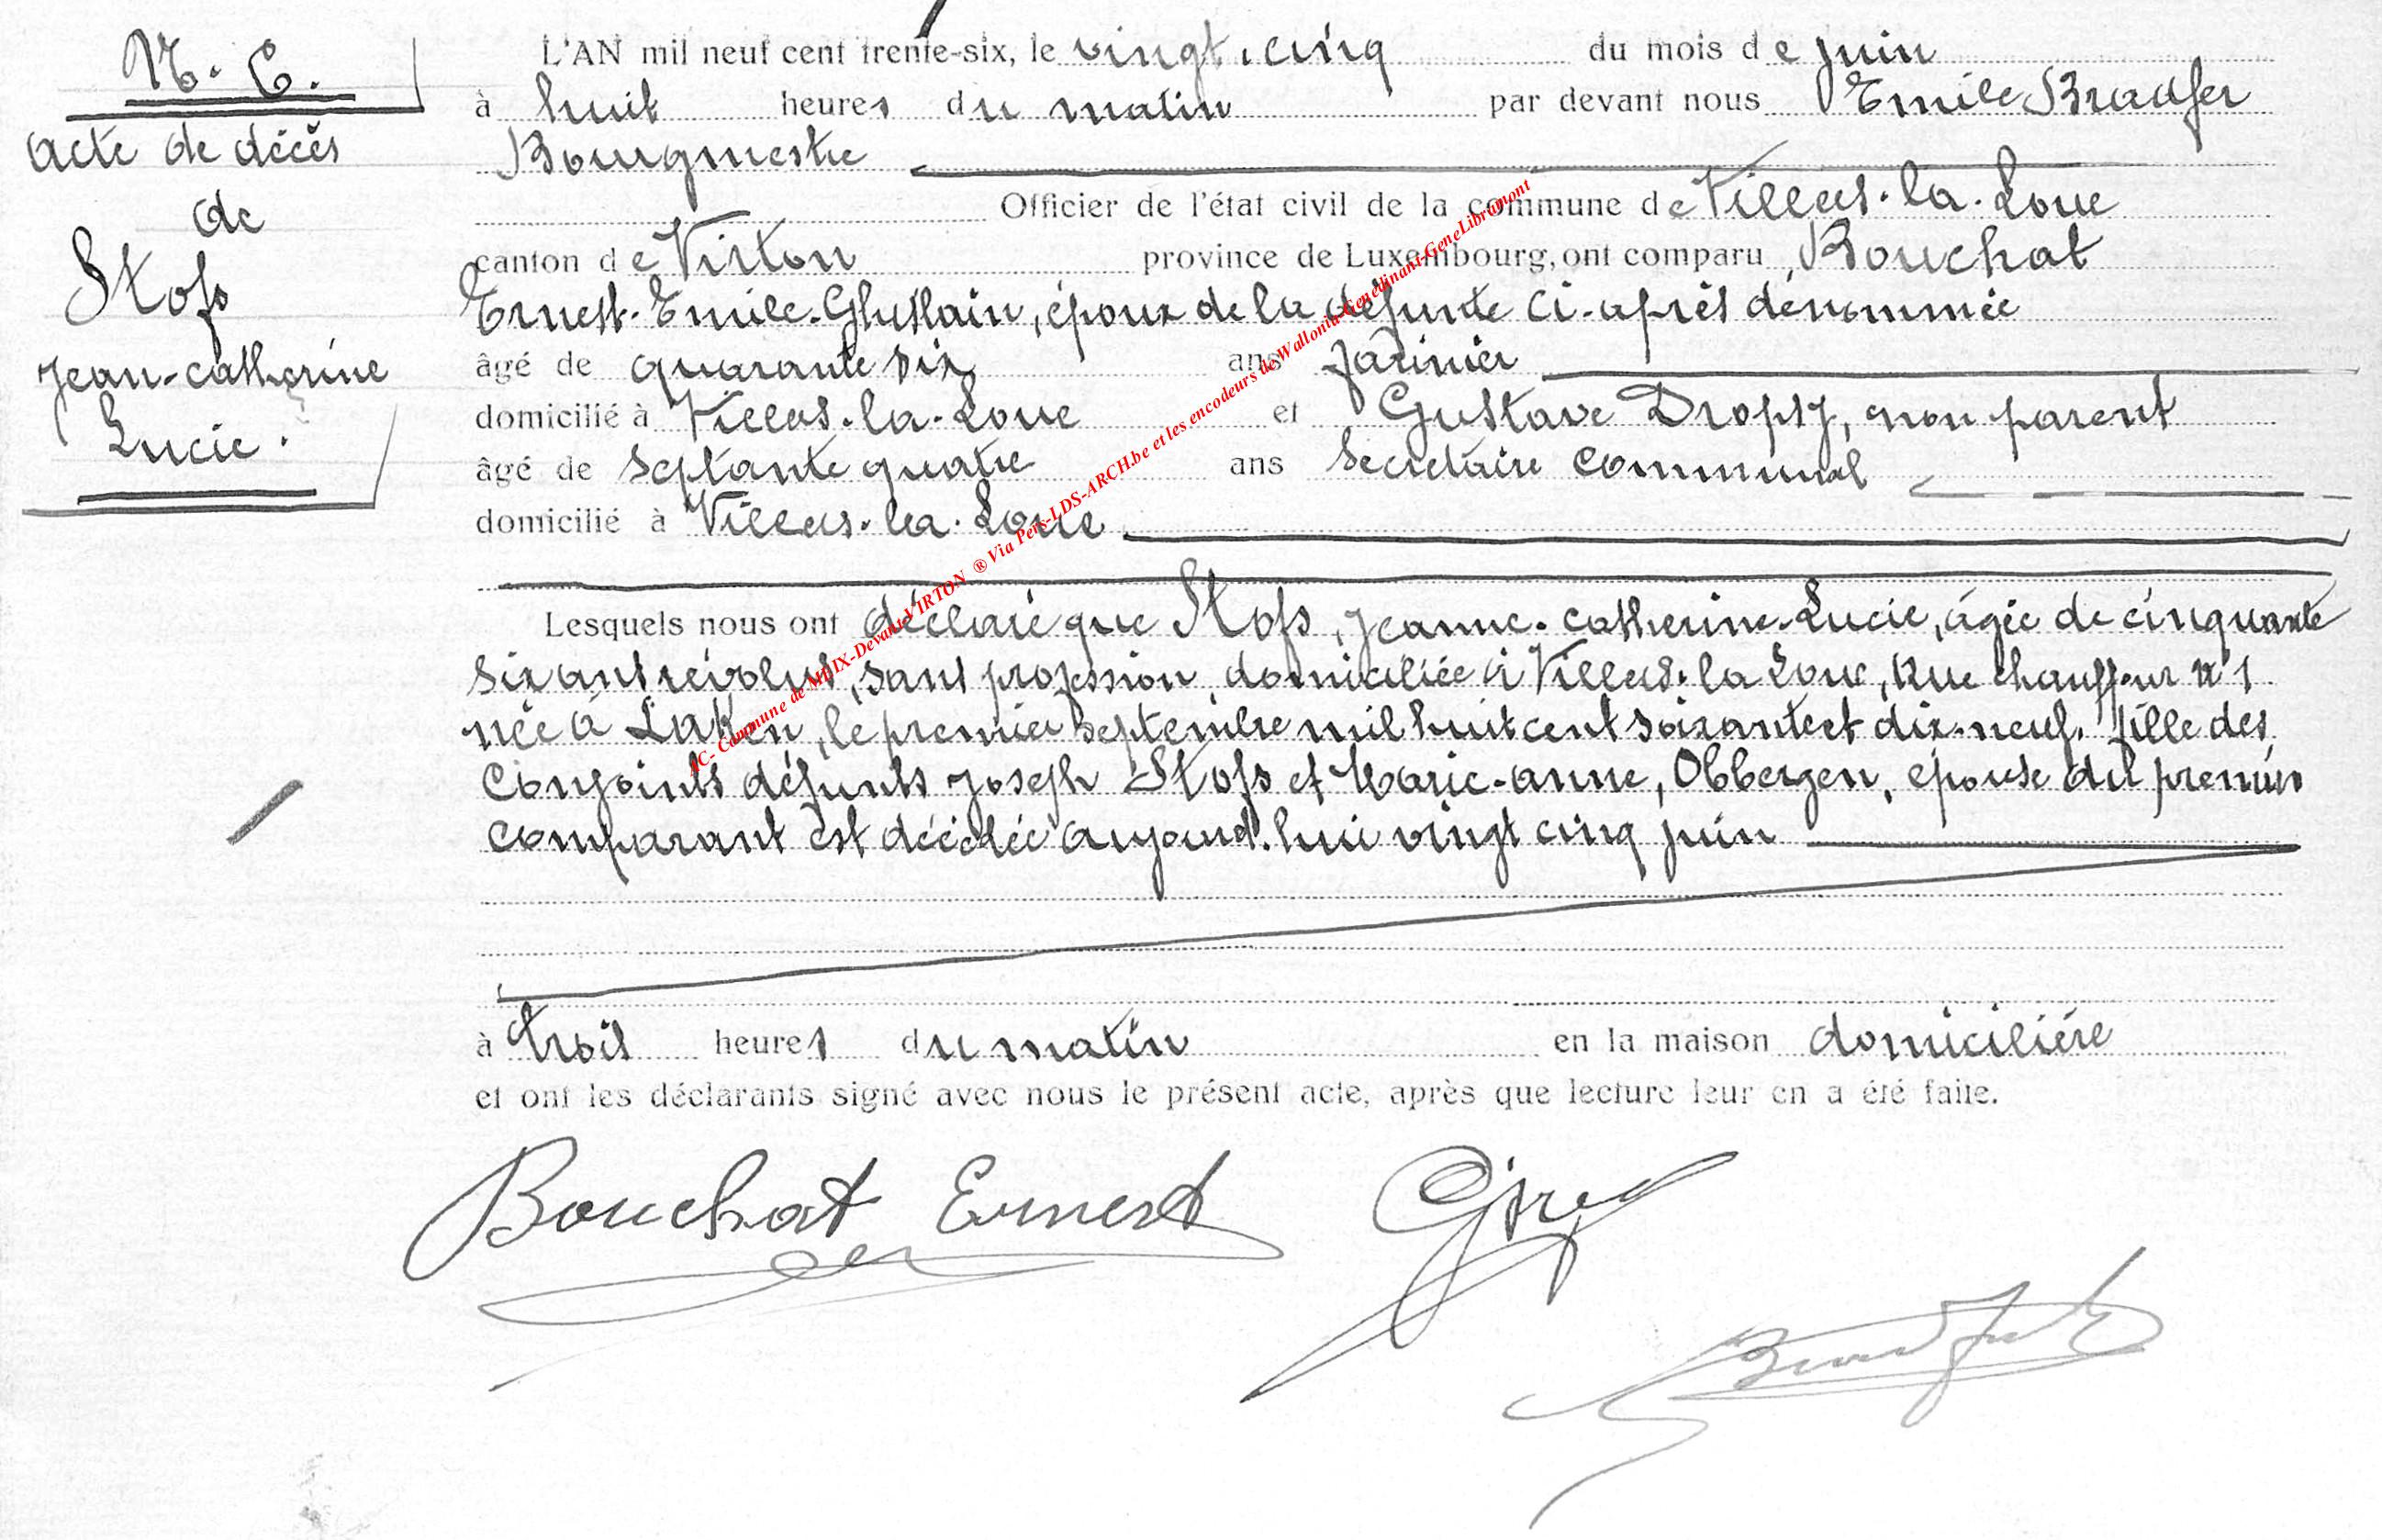 N. 6.
Acte de décès
de
Stofs
Jean-Catherine
Lucie.
L'AN mil neuf cent trente-six, le vingt-cinq du mois de juin
à huit heures du matin par devant nous Emile Bradfer
Bourgmestre
Officier de l'état civil de la commune de Villers-la-Loue
canton de Virton province de Luxembourg, ont comparu Bouchat
Ernest-Emile-Ghislain, époux de la défunte ci-après dénommée
âgé de quarante six ans
domicilié à Villers-la-Loue et Gustave Dropsy, non parent
âgé de septante quatre ans Secrétaire communal
domicilié à Villers-la-Loue
Lesquels nous ont déclaré que Stofs, Jeanne-Catherine-Lucie, âgée de cinquante
six ans révolus, sans profession, domiciliée à Villers-la-Loue, Rue Chauffour n° 1
née à Laken, le premier septembre mil huit cent soixante et dix-neuf, fille des
conjoints défunts Joseph Stofs et Marie-Anne, Obbergen, épouse du premier
comparant est décédée aujourd'hui vingt cinq juin
à trois heures du matin en la maison domiciliére
et ont les déclarants signé avec nous le présent acte, après que lecture leur en a été faite.
Bouchat Ernest
Bradfer
AC- Commune de MEIX-Devant-VIRTON ® Via Pers-LDS-ARCH.be et les encodeurs de Wallonia-Genedinant-GeneLibramont